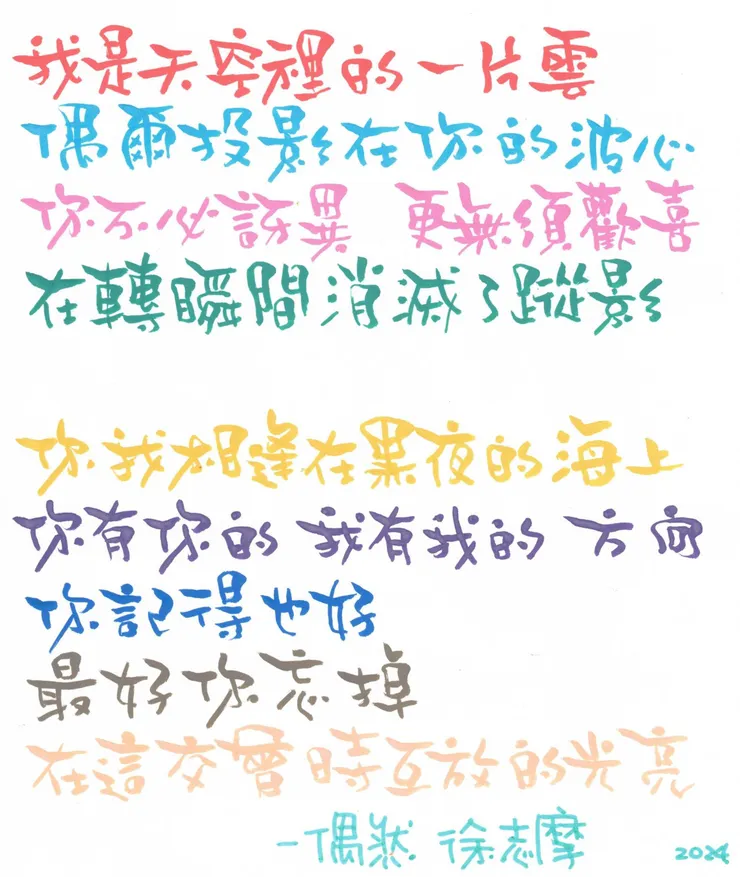 我是天空裡的一片雲
偶爾投影在你的波心
你不必訝異 更無須歡喜
在轉瞬間消滅了蹤影
你我相逢在黑夜的海上
你有你的 我有我的 方向
你記得也好
最好你忘掉
在這交會時互放的光亮
-偶然 徐志摩
2024